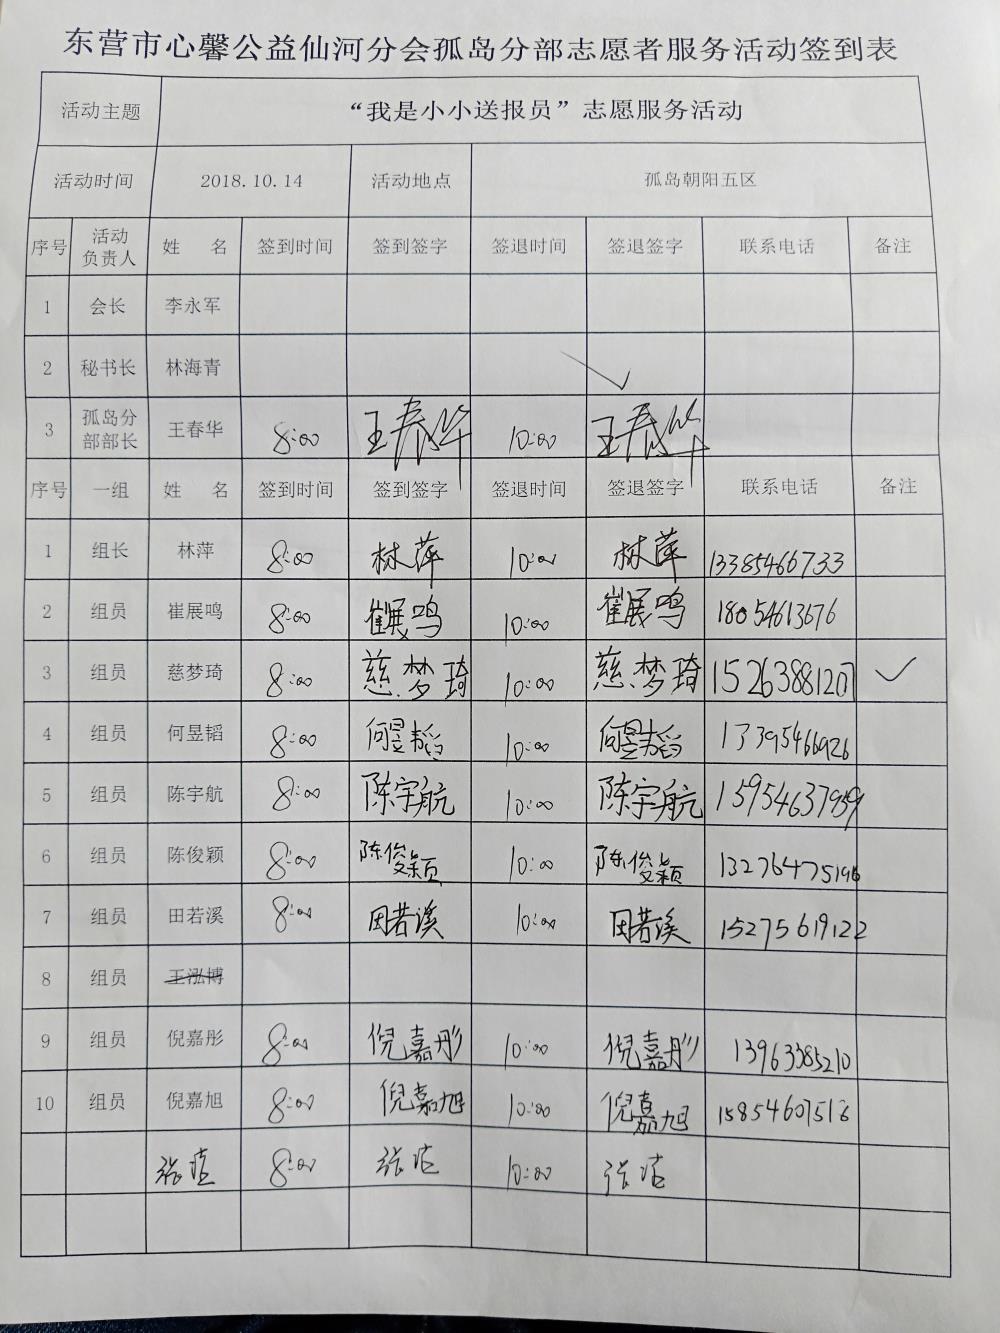 东营市心馨公益仙河分会孤岛分部志愿者服务活动签到表
活动主题 “我是小小送报员”志愿服务活动
活动时间 2018.10.14 活动地点 孤岛朝阳五区
序号 活动负责人 姓 名 签到时间 签到签字 签退时间 签退签字 联系电话 备注
1 会长 李永军
2 秘书长 林海青
3 孤岛分部部长 王春华 8:00 王春华 10:00 王春华
序号 一组 姓 名 签到时间 签到签字 签退时间 签退签字 联系电话 备注
1 组长 林萍 8:00 林萍 10:00 林萍 13385466733
2 组员 崔展鸣 8:00 崔展鸣 10:00 崔展鸣 18054613676
3 组员 慈梦琦 8:00 慈梦琦 10:00 慈梦琦 15263881207 ✓
4 组员 何昱韬 8:00 何昱韬 10:00 何昱韬 13395466926
5 组员 陈宇航 8:00 陈宇航 10:00 陈宇航 15954637959
6 组员 陈俊颖 8:00 陈俊颖 10:00 陈俊颖
7 组员 田若溪 8:00 田若溪 10:00 田若溪 15275619122
8 组员 王泓博
9 组员 倪嘉彤 8:00 倪嘉彤 10:00 倪嘉彤 13963385210
10 组员 倪嘉旭 8:00 倪嘉旭 10:00 倪嘉旭
8:00 10:00